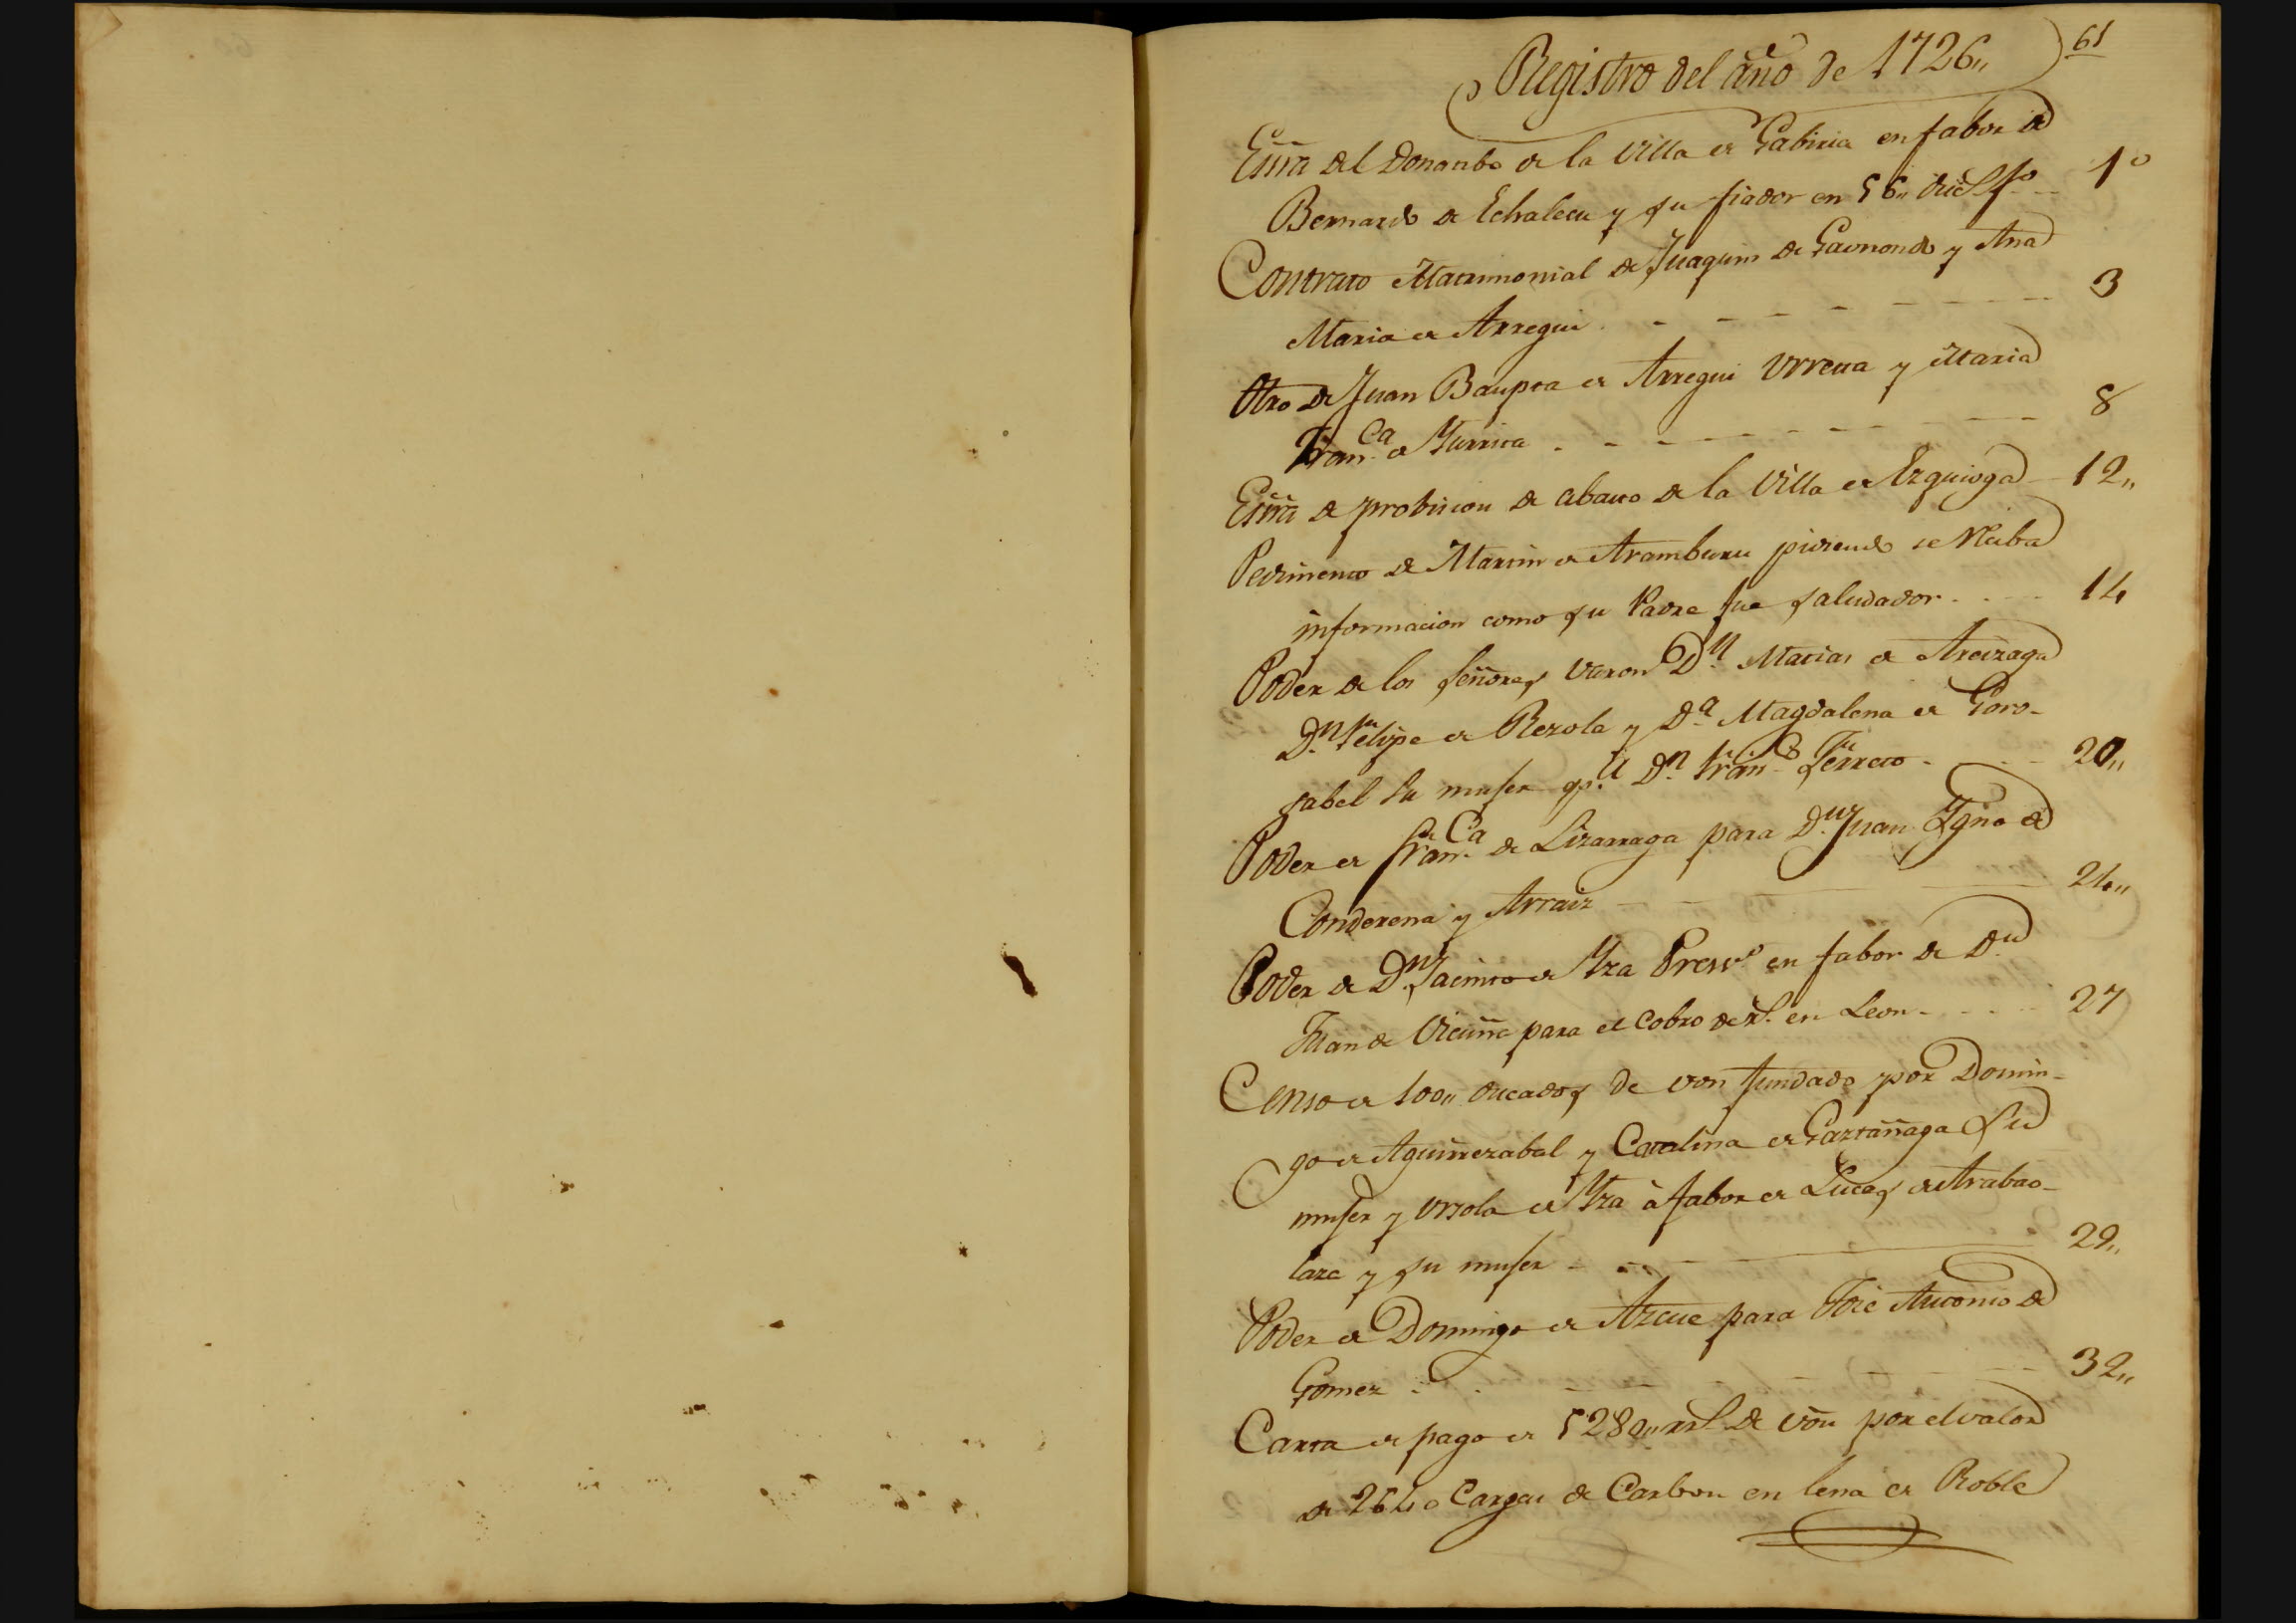 61
Registro del año de 1726,,
Essrâ del Donatibo de la Villa de Gabiria en fabor de
Bernardo de Echalecu y su fiador en 56,, duc.s fo 1º
Contrato Matrimonial de Juaquin de Gaomondo y Ana
Maria de Arregui 3
Otro de Juan Baupta de Arregui Urreta y Maria
Fran.ca de Yurrita 8
Essrâ de probision de abasto de la Villa de Ezquioga 12,,
Pedimento de Martin de Aramburu pidiendo se Reciba
informacion como su Padre fue saludador 14
Poder de los señores Varon D.n Matias de Areizaga
D.n Felipe de Rezola y D.a Magdalena de Goro-
sabel su muger p.a D.n Fran.co Ferrero 20,,
Poder de Fran.ca de Lizarraga para D.n Juan Ygno de
Conderena y Arraiz 24,,
Poder de D.n Jacinto de Yza Presv.o en fabor de D.n
Juan de Vicuña para el cobro de r.s en Leon 27
Censo de 100,, ducados de von fundado por Domin-
go de Aguirrezabal y Catalina de Gaztañaga su
muger y Ursola de Yza à fabor de Lucas de Arabao-
laza y su muger 29,,
Poder de Domingo de Azcue para Jose Antonio de
Gomez 32,,
Carta de pago de 5280,, rr.s de von por el valor
de 2640 Cargas de Carbon en lena de Roble